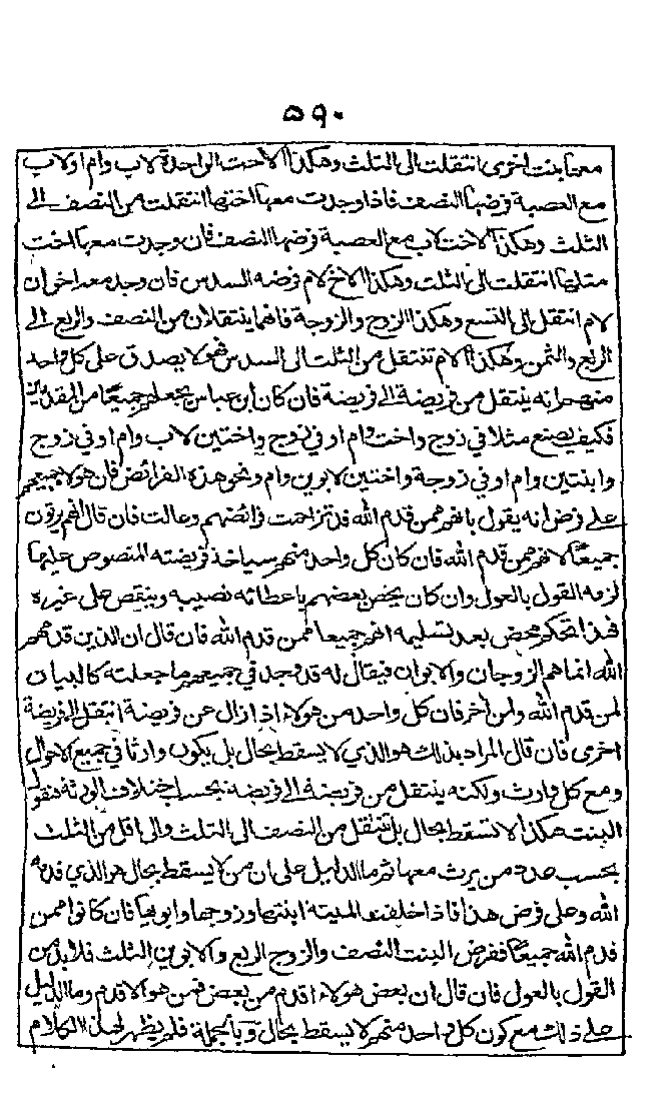 ٥٩٠
معها بنت اخرى انتقلت الى الثلث وهكذا الاخت الواحدة لاب وام او لاب
مع العصبة فرضها النصف فاذا وجدت معها اختها انتقلت من النصف الى
الثلث وهكذا الاخت لاب مع العصبة فرضها النصف فان وجدت معها اخت
مثلها انتقلت الى الثلث وهكذا الاخ لام فرضه السدس فان وجد معه اخوان
لام انتقل الى التسع وهكذا الزوج والزوجة فانهما ينتقلان من النصف والربع الى
الربع والثمن وهكذا الام تنتقل من الثلث الى السدس فهولا يصدق على كل واحد
منهم انه ينتقل من فريضة الى فريضة فان كان ابن عباس يجعلهم جميعا من
فكيف يصنع مثلا في زوج واخت وام او في زوج واختين لاب وام او في زوج
وابنتين وام او في زوجة واختين لابوين وام ونحو هذه الفرائض فان هولا جميعهم
على فرض انه يقول بانهم ممن قدم الله قد تزاحمت فرائضهم وعالت فان قال انهم يرثون
جميعا لانهم ممن قدم الله فان كان كل واحد منهم سياخذ فريضته المنصوص عليها
لزمه القول بالعول وان كان يخص بعضهم باعطائه نصيبه وينقص على غيره
فهذا تحكم محض بعد تسليمه انهم جميعا ممن قدم الله فان قال ان الذين قدمهم
الله انما هم الزوجان والابوان فيقال له قد وجد في جميعهم ما جعلته كالبيان
لمن قدم الله ولمن اخر فان كل واحد من هولاء اذا زال عن فريضة انتقل الى فريضة
اخرى فان قال المراد بذلك هو الذي لا يسقط بحال بل يكون وارثا في جميع الاحوال
ومع كل وارث ولكنه ينتقل من فريضة الى فريضة بحسب اختلاف الورثة فنقول
البنت هكذا لا تسقط بحال بل تنتقل من النصف الى الثلث والى اقل من الثلث
بحسب عدد من يرث معها ثم ما الدليل على ان من لا يسقط بحال هو الذي قدمه
الله وعلى فرض هذا فاذا خلفت الميتة ابنتها وزوجها وابويها فان كانوا ممن
قدم الله جميعا ففرض البنت النصف والزوج الربع والابوين الثلث فلا بد من
القول بالعول فان قال ان بعض هولاء اقدم من بعض فمن هو الاقدم وما الدليل
على ذلك مع كون كل واحد منهم لا يسقط بحال وبالجملة فلم يظهر لهذا الكلام